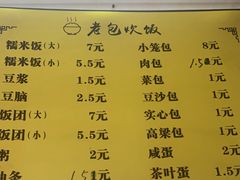 老包炊饭
糯米饭(大) 7元 小笼包 8元
糯米饭(小) 5.5元 肉包 1.5元
豆浆 1.5元 菜包 1元
豆脑 2.5元 豆沙包 1元
饭团(大) 7元 实心包 1元
饭团(小) 5.5元 高粱包 1元
粥 2元 咸蛋 2元
油条 元 茶叶蛋 1.5元